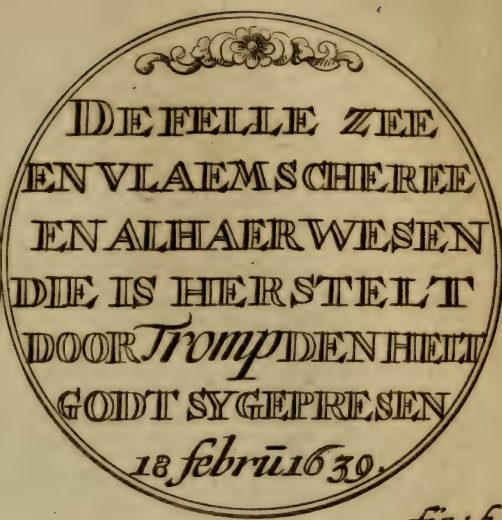 DE FELLE ZEE
EN VLAEMSCHE REE
EN AL HAER WESEN
DIE IS HERSTELT
DOOR Tromp DEN HELT
GODT SY GEPRESEN
18 febrū 1639.